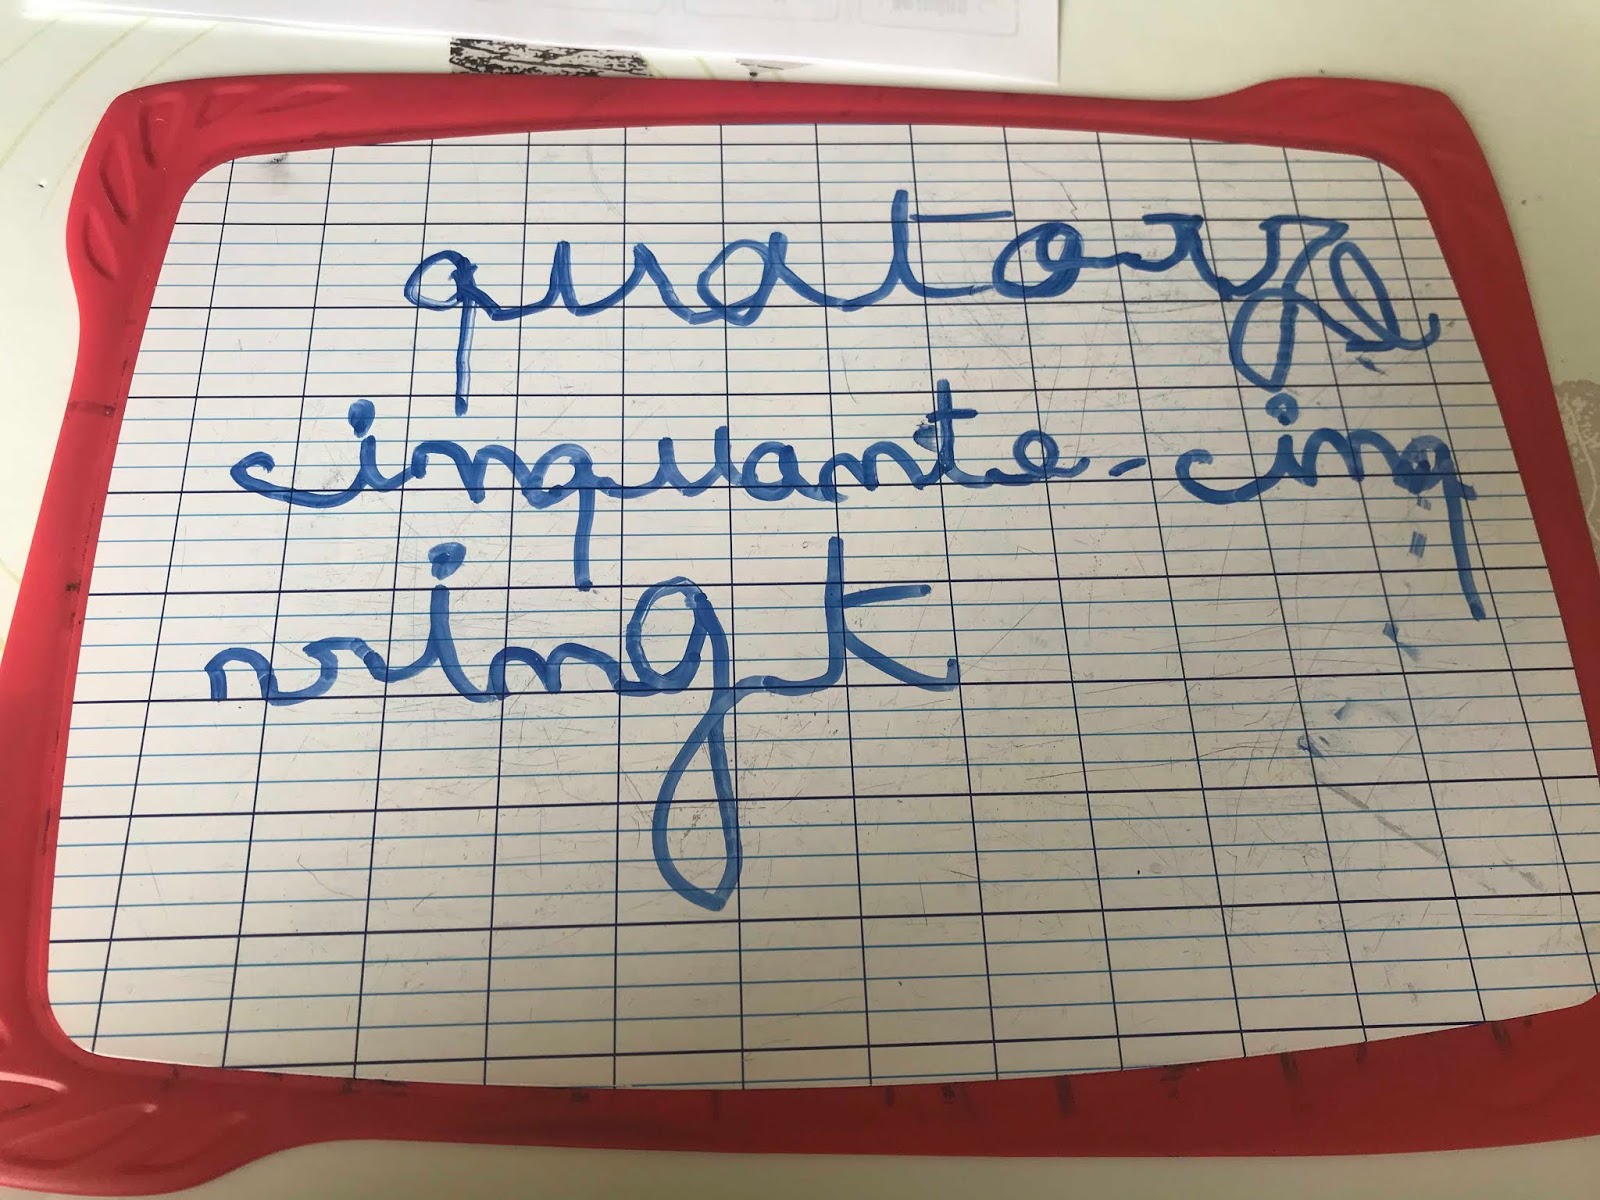 quatorze
cinquante-cinq
vingt